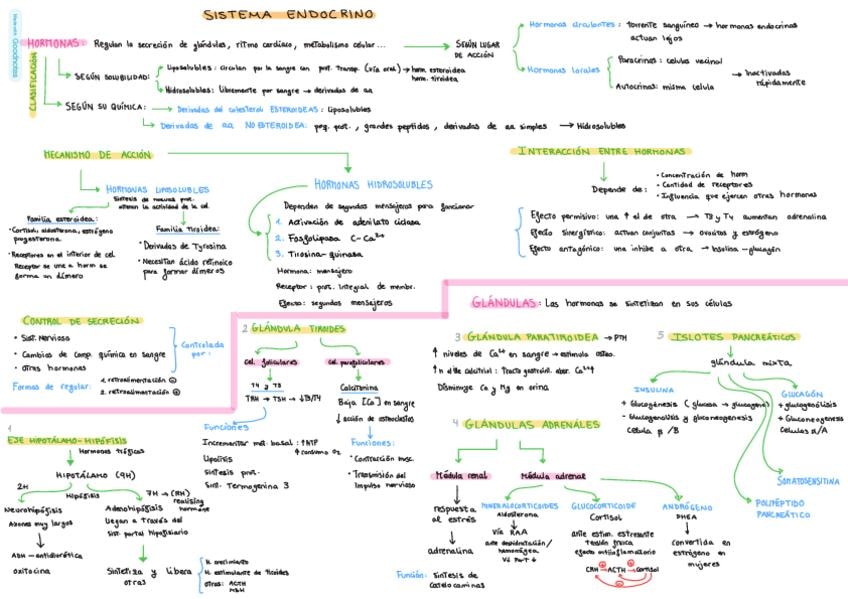 Made with Goodnotes
SISTEMA ENDOCRINO
HORMONAS Regulan la secreción de glándulas, ritmo cardíaco, metabolismo celular...
SEGÚN LUGAR
DE ACCIÓN
Hormonas circulantes: torrente sanguíneo → hormonas endocrinas
actúan lejos
Hormonas locales
Paracrinas: células vecinal
Autocrinas: misma célula
Inactivadas
rápidamente
CLASIFICACIÓN
SEGÚN SOLUBILIDAD:
Liposolubles: circulan por la sangre con prot. transp. (vía oral) → horm. esteroidea
horm. tiroidea
Hidrosolubles: Libremente por sangre → derivados de aa
SEGÚN SU QUÍMICA: → Derivadas del colesterol ESTEROIDEAS: liposolubles
Derivadas de aa NO ESTEROIDEA: peq. prot., grandes peptidos, derivados de aa simples → Hidrosolubles
MECANISMO DE ACCIÓN
HORMONAS LIPOSOLUBLES
Síntesis de nuevas prot.
alteran la actividad de la cel.
Familia esteroidea:
• Cortisol, aldosterona, estrógeno
progesterona
• Receptores en el interior de cel.
Receptor se une a horm se
forma un dímero
Familia tiroidea:
• Derivadas de Tyrosina
• Necesitan ácido retinoico
para formar dímeros
HORMONAS HIDROSOLUBLES
Dependen de segundos mensajeros para funcionar
1. Activación de adenilato ciclasa
2. Fosfolipasa C - Ca2+
3. Tirosina-quinasa
Hormona: mensajero
Receptor: prot. integral de membr.
Efecto: segundos mensajeros
INTERACCIÓN ENTRE HORMONAS
Depende de:
• Concentración de horm
• Cantidad de receptores
• Influencia que ejercen otras hormonas
Efecto permisivo: una ↑ el de otra → T3 y T4 aumentan adrenalina
Efecto sinergístico: actúan conjuntas → ovocitos y estrógeno
Efecto antagónico: una inhibe a otra → Insulina-glucagón
GLÁNDULAS: Las hormonas se sintetizan en sus células
CONTROL DE SECRECIÓN
• Sist. Nervioso
• Cambios de comp. química en sangre
• otras hormonas
Controlada
por:
Formas de regular:
1. retroalimentación ⊖
2. retroalimentación ⊕
1
EJE HIPOTÁLAMO-HIPÓFISIS
Hormonas tróficas
HIPOTÁLAMO (9H)
2H
Hipófisis
7H → (RH)
realising
hormone
Neurohipófisis
Axones muy largos
ADH - antidiurética
oxitocina
Adenohipófisis
Llegan a través del
sist. portal hipofisiario
Sintetiza y libera
otras
H. crecimiento
H. estimulante de tiroides
otras: ACTH
MSH
2 GLÁNDULA TIROIDES
Cel. foliculares
T4 y T3
TRH → TSH → ↓T3/T4
Funciones
Incrementar met. basal: ↑ATP
↑ consumo O2
Lipólisis
Síntesis prot.
Sint. Termogenina 3
Cel. parafoliculares
Calcitonina
Baja [Ca] en sangre
↓ acción de osteoclastos
Funciones:
• Contracción musc.
• Transmisión del
impulso nervioso
3 GLÁNDULA PARATIROIDEA → PTH
↑ niveles de Ca2+ en sangre → estimula osteo.
Disminuye Ca y Mg en orina
4 GLÁNDULAS ADRENALES
Médula renal
respuesta
al estrés
adrenalina
Función: síntesis de
catecolaminas
Médula adrenal
MINERALOCORTICOIDES
Aldosterona
Vía RAA
ante deshidratación/
hemorragia
GLUCOCORTICOIDE
Cortisol
Ante estim. estresante
tensión física
efecto antiinflamatorio
CRH → ACTH → Cortisol
ANDRÓGENO
DHEA
convertida en
estrógeno en
mujeres
5 ISLOTES PANCREÁTICOS
glándula mixta
INSULINA
+ Glucogénesis (glucosa → glucógeno)
- Glucogenolisis y gluconeogenesis
Célula β/B
GLUCAGÓN
+ glucogenólisis
+ Gluconeogenesis
Células α/A
SOMATOSTATINA
POLIPÉPTIDO
PANCREÁTICO